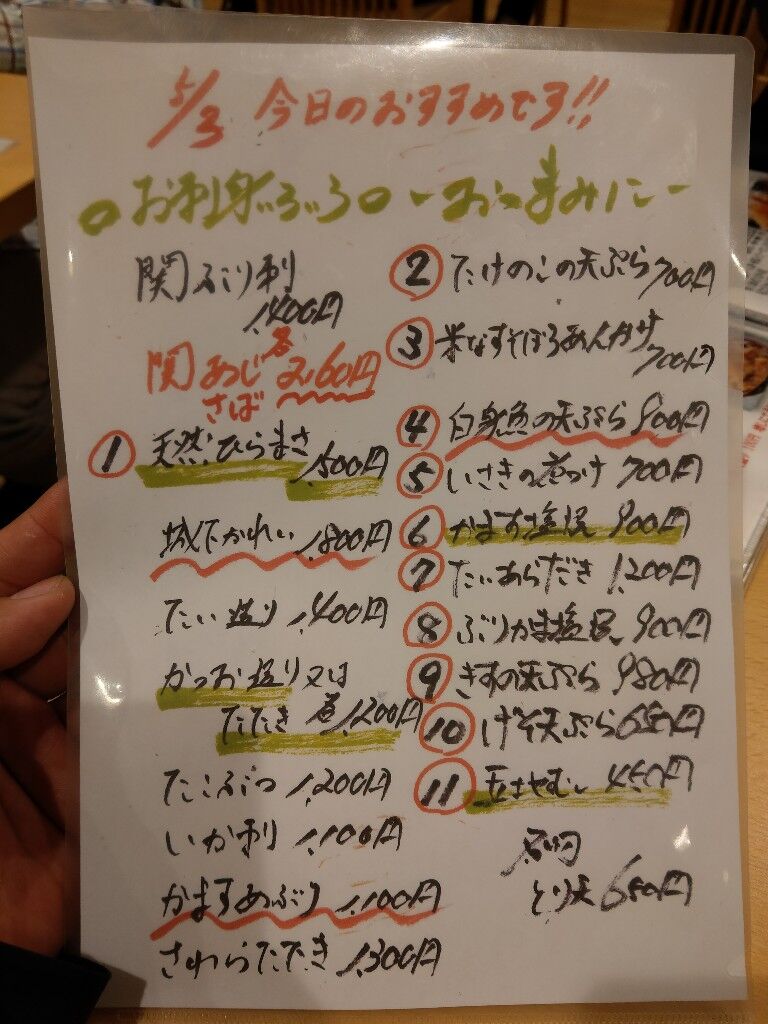 5/3 今日のおすすめです!!
○お刺身いろいろ○
関ぶり刺
1,400円
関あじ 各 2,160円
さば
① 天然ひらまさ
1,500円
城下かれい 1,800円
たい造り 1,400円
かつお造り又は
たたき 各 1,200円
たこぶつ 1,200円
いか刺 1,100円
かますあぶり 1,100円
さわらたたき 1,300円
-おつまみに-
② たけのこの天ぷら 700円
③ 米なすそぼろあんかけ
700円
④ 白身魚の天ぷら 800円
⑤ いさきの煮つけ 700円
⑥ かます塩焼 900円
⑦ たいあらだき 1,200円
⑧ ぶりかま塩焼 900円
⑨ きすの天ぷら 980円
⑩ げそ天ぷら 680円
⑪ 玉子やむし 450円
とり天 680円